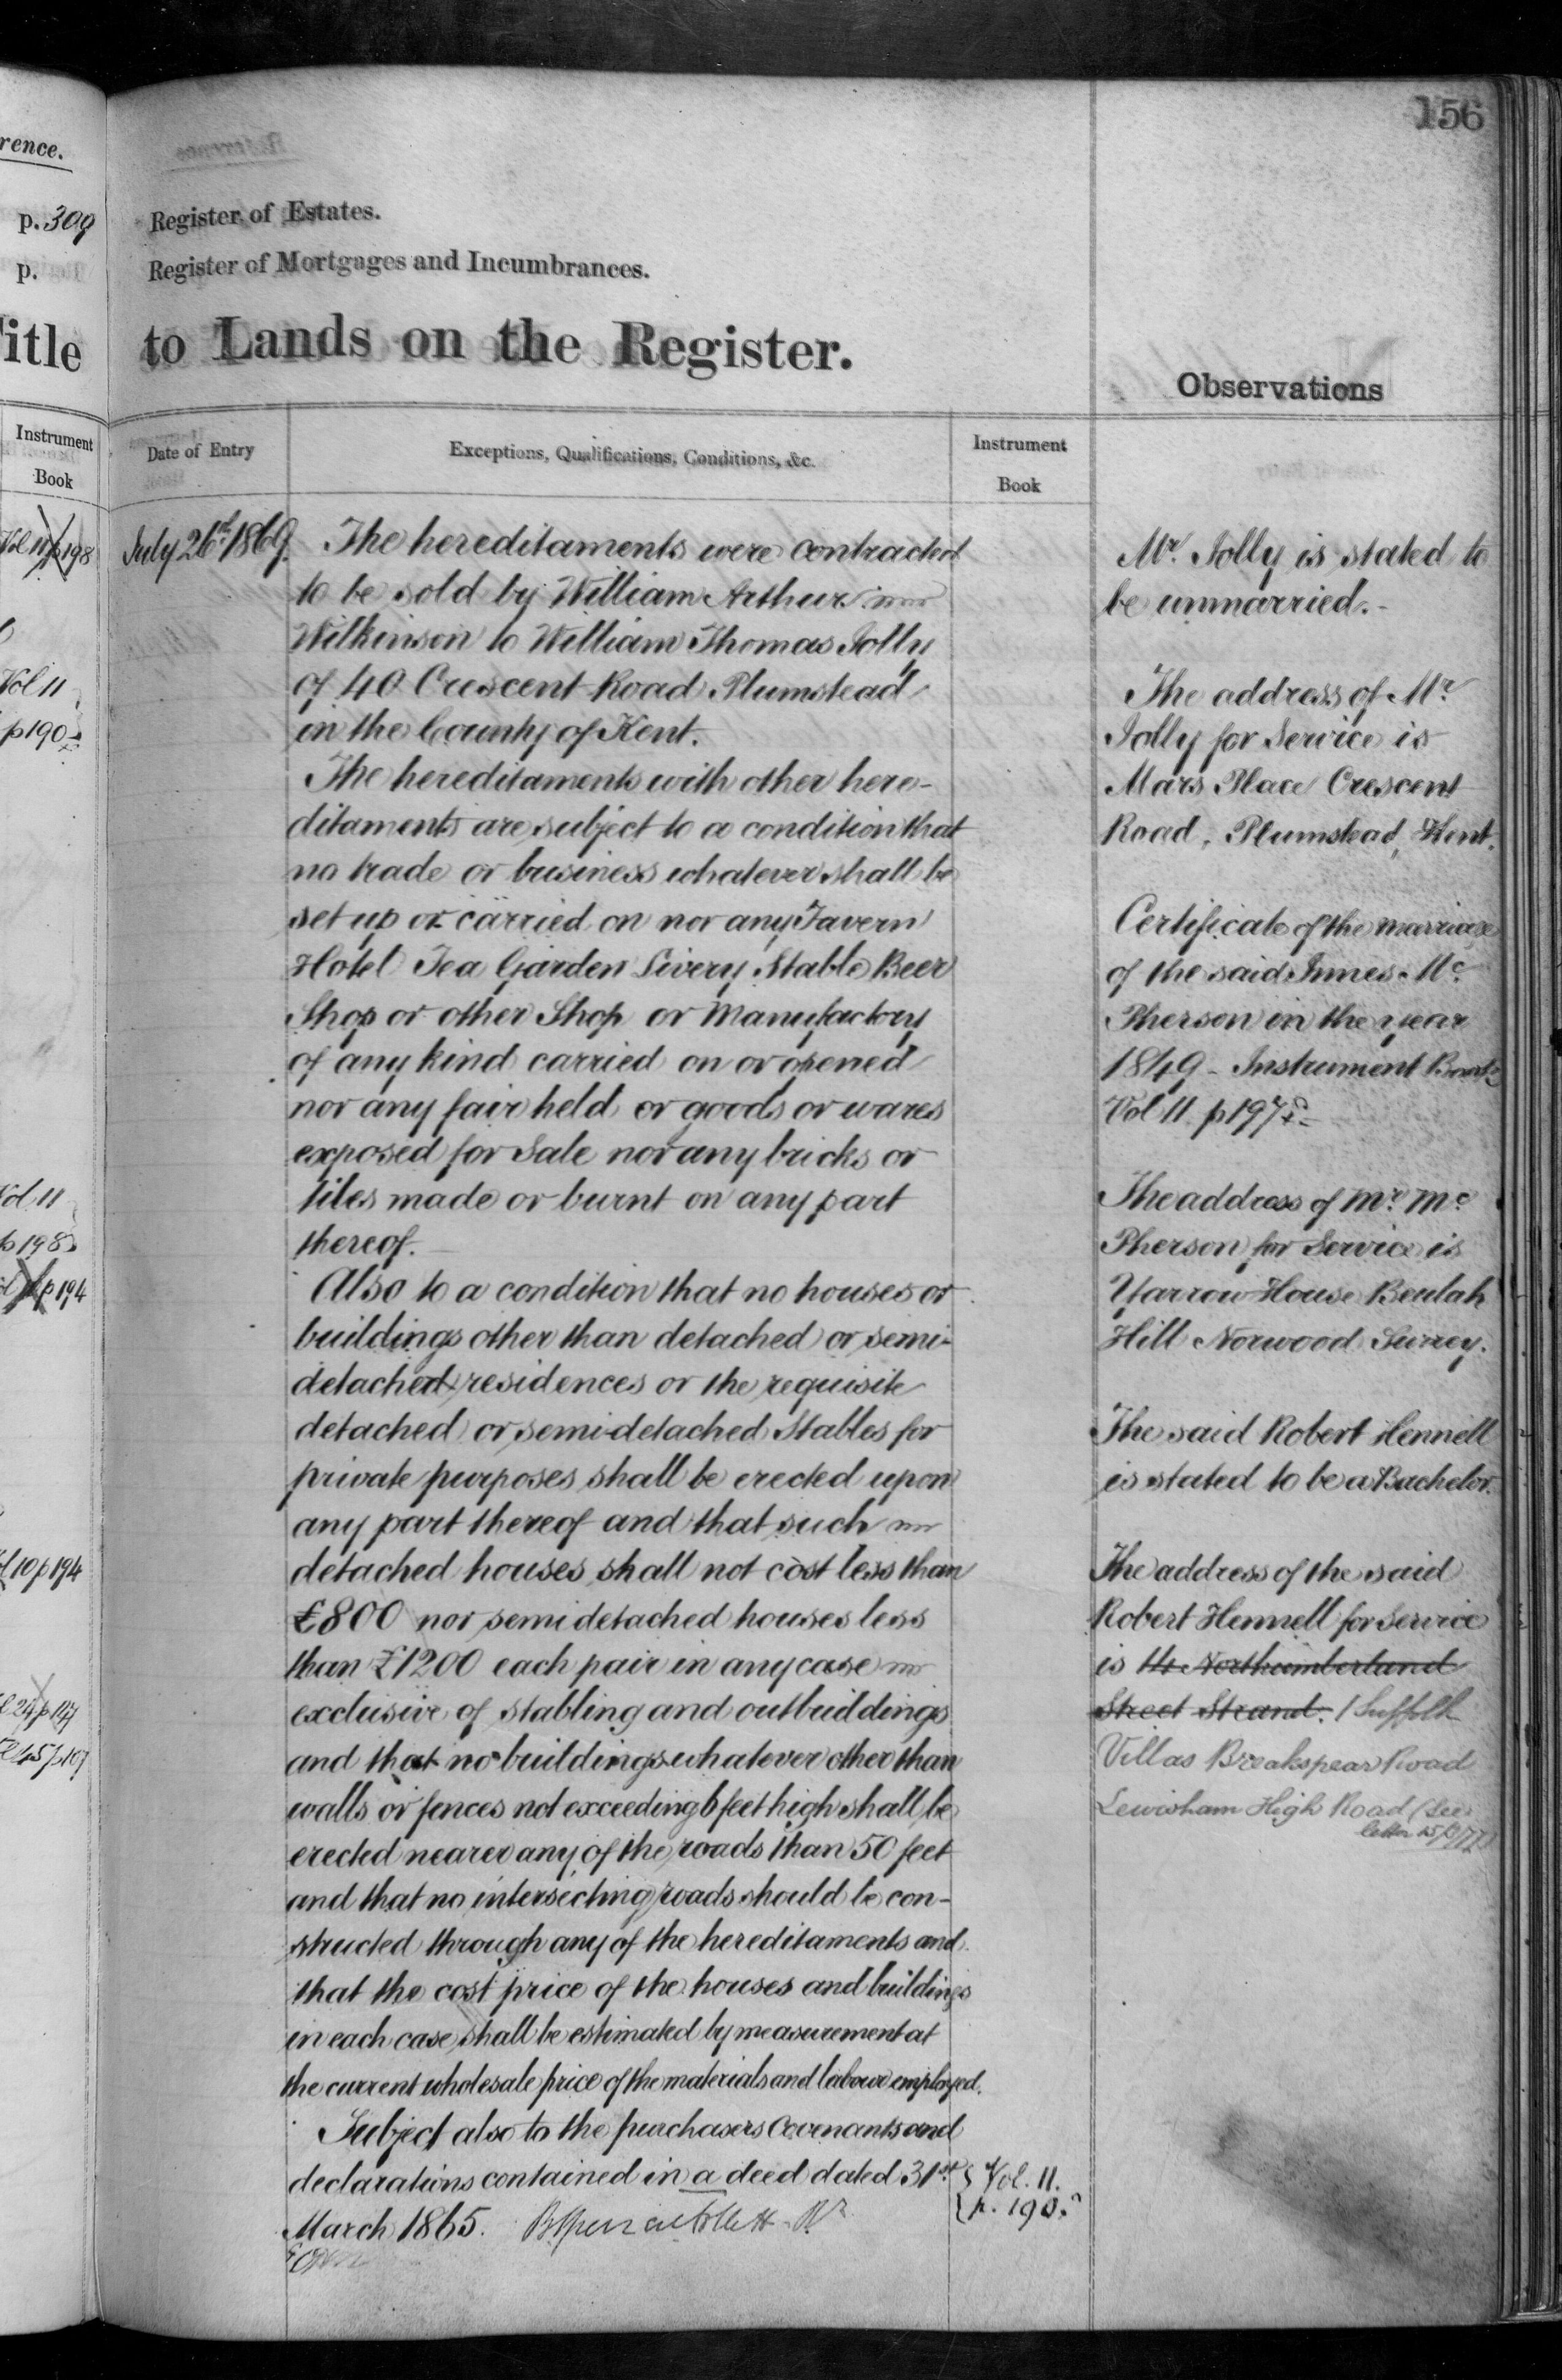 rence.
p. 309
p.
Title
Instrument
Book
Vol 11 p 198
Vol 11
p 190
Vol 11
p 198
p 194
Vol 10 p 194
156
Register of Estates.
Register of Mortgages and Incumbrances.
to Lands on the Register.
Date of Entry
Exceptions, Qualifications, Conditions, &c.
Instrument
Book
July 26th 1869.
The hereditaments were contracted
to be sold by William Arthur
Wilkinson to William Thomas Jolly
of 40 Crescent Road Plumstead
in the County of Kent.
The hereditaments with other here-
ditaments are subject to a condition that
no trade or business whatever shall be
set up or carried on nor any Tavern
Hotel Tea Garden Livery Stable Beer
Shop or other Shop or Manufactory
of any kind carried on or opened
nor any fair held or goods or wares
exposed for Sale nor any bricks or
tiles made or burnt on any part
thereof.
Also to a condition that no houses or
buildings other than detached or semi-
detached residences or the requisite
detached or semi-detached Stables for
private purposes shall be erected upon
any part thereof and that such
detached houses shall not cost less than
£800 nor semi detached houses less
than £1200 each pair in any case
exclusive of stabling and outbuildings
and that no buildings whatever other than
walls or fences not exceeding 6 feet high shall be
erected nearer any of the roads than 50 feet
and that no intersecting roads should be con-
structed through any of the hereditaments and
that the cost price of the houses and buildings
in each case shall be estimated by measurement at
the current wholesale price of the materials and labour employed.
Subject also to the purchasers Covenants and
declarations contained in a deed dated 31st
March 1865.
Vol. 11.
p. 190.
Observations
Mr. Jolly is stated to
be unmarried.-
The address of Mr
Jolly for Service is
Mars Place Crescent
Road, Plumstead, Kent.
Certificate of the marriage
of the said Innes Mc
Pherson in the year
1849 - Instrument Book
Vol 11 p 197
The address of Mr. Mc
Pherson for Service is
Yarrow House Beulah
Hill Norwood Surrey.
The said Robert Hennell
is stated to be a Bachelor.
The address of the said
Robert Hennell for Service
is 14 Northumberland
Street Strand. 1 Suffolk
Villas Breakspear Road
Lewisham High Road (See
letter